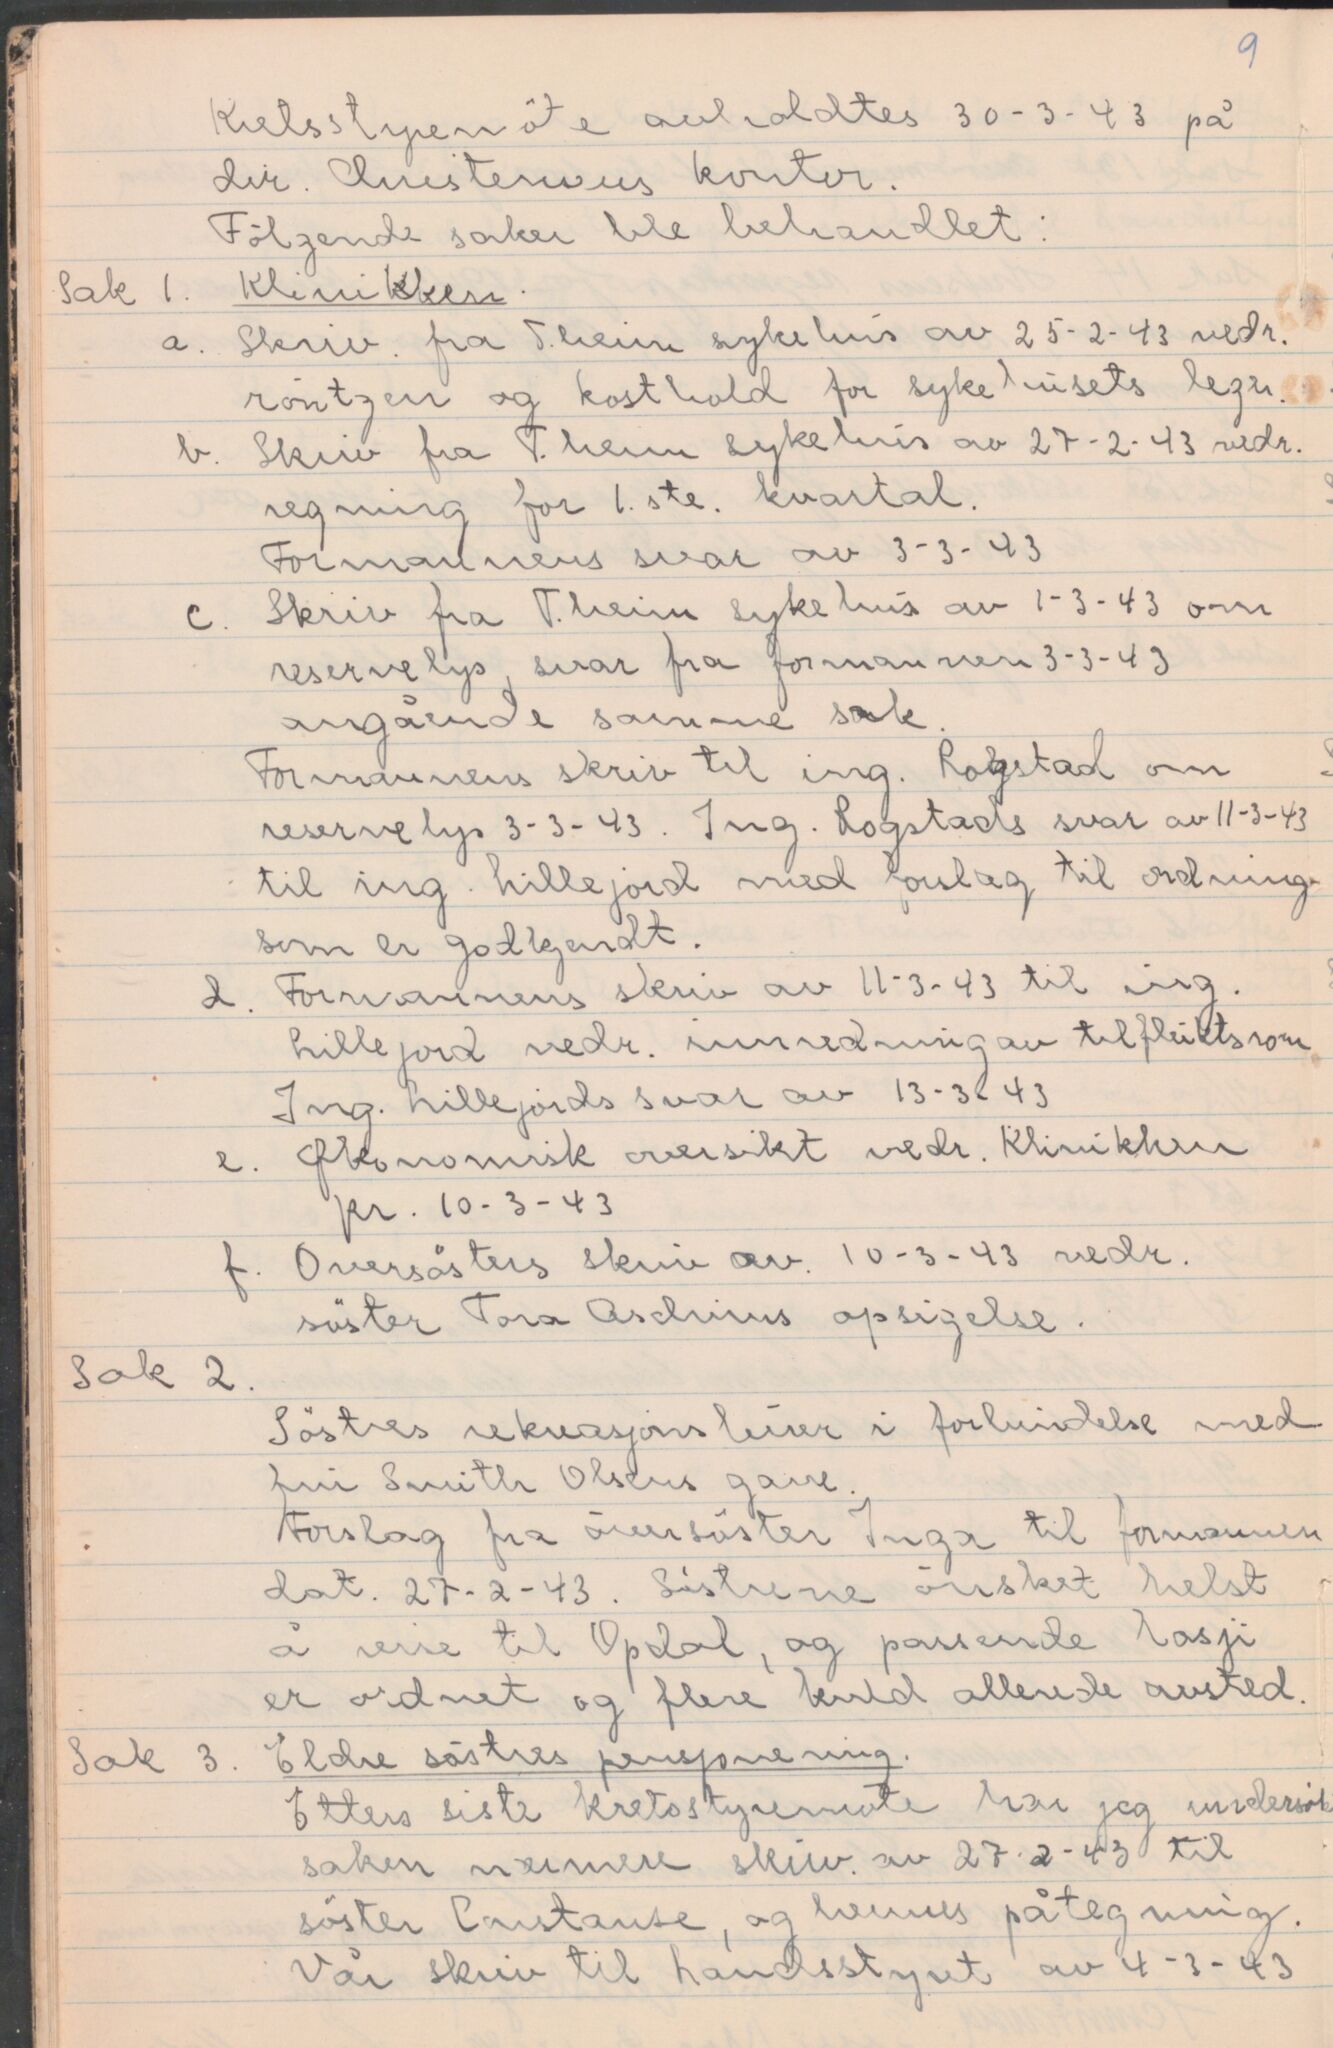 9
Kretsstyremöte avholdtes 30-3-43 på
dir. Christensens kontor.
Fölgende saker ble behandlet:
Sak 1. Klinikken.
a. Skriv. fra T.heim sykehus av 25-2-43 vedr.
röntgen og kosthold for sykehusets leger.
b. Skriv fra T.heim sykehus av 27-2-43 vedr.
regning for 1.ste. kvartal.
Formannens svar av 3-3-43
c. Skriv fra T.heim sykehus av 1-3-43 om
reservelys, svar fra formannen 3-3-43
angående samme sak.
Formannens skriv til ing. Rogstad om
reservelys 3-3-43. Ing. Rogstads svar av 11-3-43
til ing. Lillejord med forslag til ordning
som er godkjendt.
d. Formannens skriv av 11-3-43 til ing.
Lillejord vedr. innredning av tilfluktsrom
Ing. Lillejords svar av 13-3-43
e. Økonomisk oversikt vedr. Klinikken
pr. 10-3-43
f. Oversösters skriv av. 10-3-43 vedr.
söster Tora opsigelse.
Sak 2.
Söstres rekreasjons i forbindelse med
fru Smith Olsens gave.
Forslag fra översöster Inga til formannen
dat. 27-2-43. Söstrene önsket helst
å reise til Opdal, og passende losji
er ordnet og flere allerede avsted.
Sak 3. Eldre söstres pensjonering.
Etters siste kretsstyremöte har jeg undersök
saken nærmere skriv. av 27-2-43 til
söster Constanse, og hennes påtegning.
Vår skriv til Landsstyret av 4-3-43